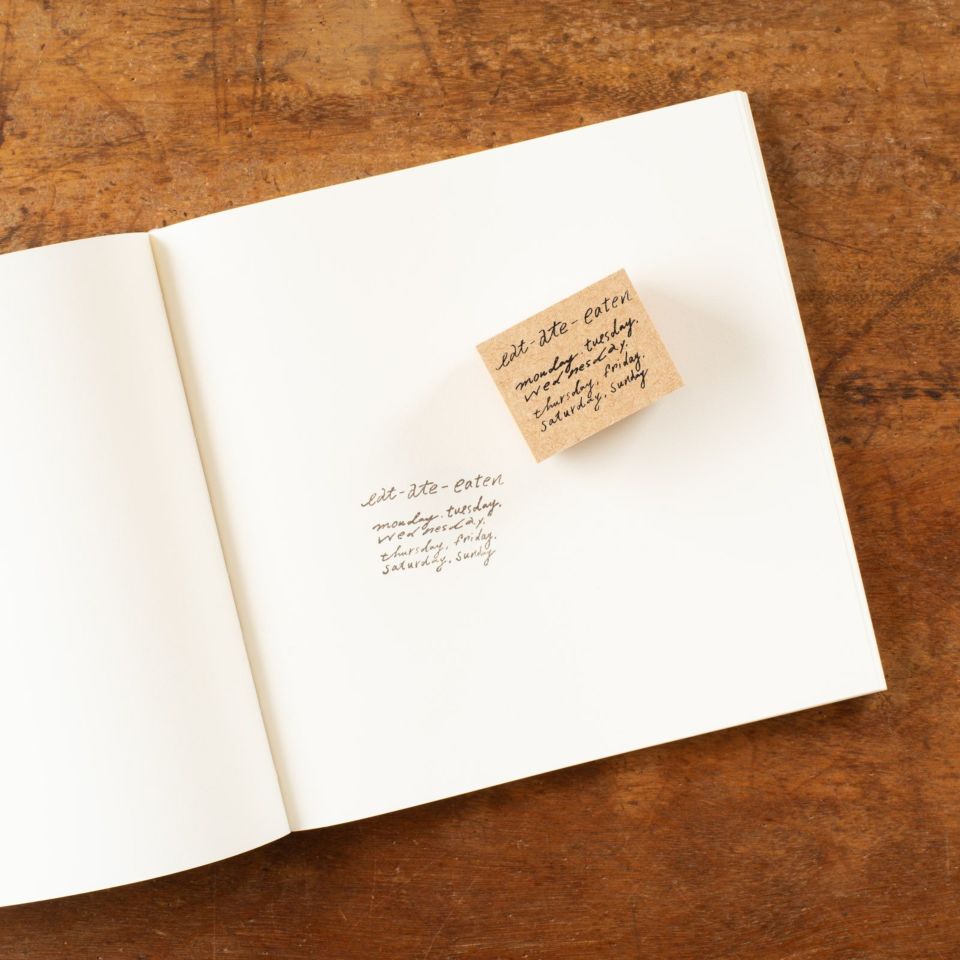 eat-ate-eaten
monday. tuesday.
wednesday.
thursday, friday.
saturday, sunday
eat-ate-eaten
monday. tuesday.
wednesday.
thursday, friday.
saturday, sunday